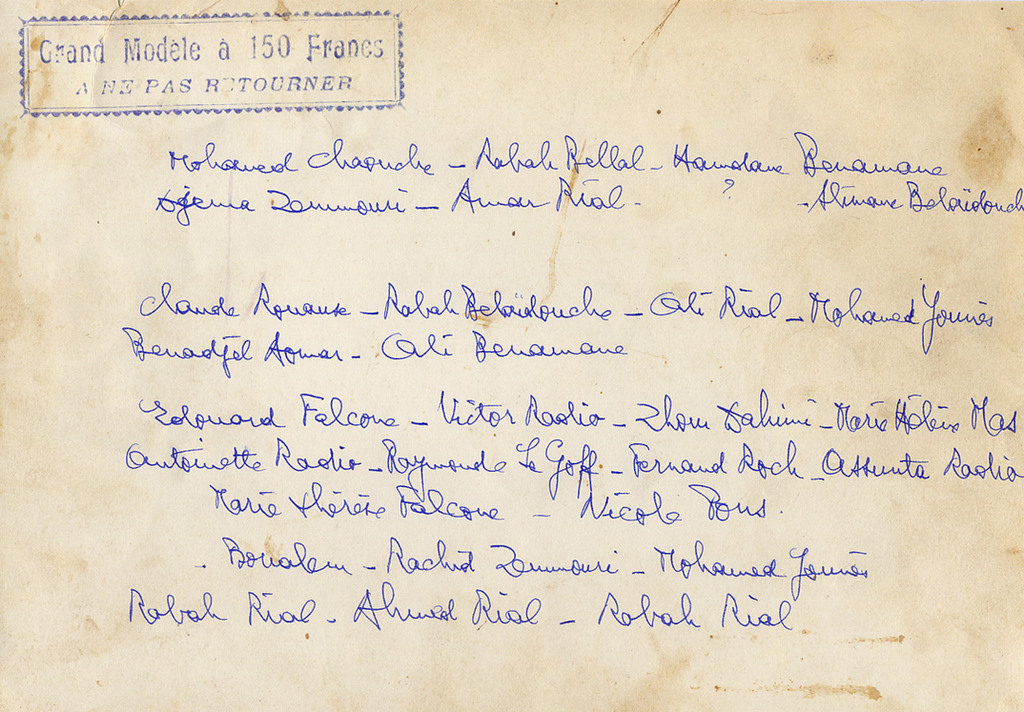 Grand Modèle à 150 Francs
A NE PAS RETOURNER
Mohamed Chaouche - Rabah Bellal - Hamdane Benamane
Djema Zemmouri - Amar Rial - ? - Slimane Belaïdouch
Claude Rouause - Rabah Belaïdouche - Ali Rial - Mohamed Younès
Benadjel Aomar - Ali Benamane
Edouard Falcone - Victor Radio - Zhour Dahimi - Marie Hélène Mas
Antoinette Radio - Raymonde Le Goff - Fernand Roch - Assunta Radio
Marie Thérèse Falcone - Nicole Pons.
- Boualem - Rachid Zemmouri - Mohamed Younès
Rabah Rial - Ahmed Rial - Rabah Rial